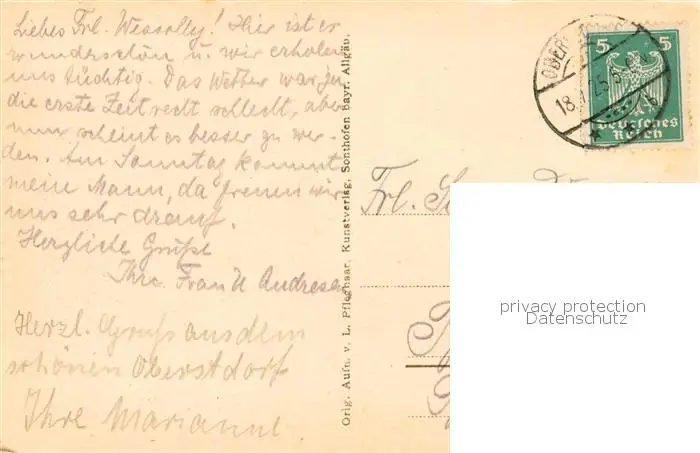 Liebes Frl. Wessolly! Hier ist es
wunderschön u. wir erholen
uns tüchtig. Das Wetter war ja
die erste Zeit recht schlecht, aber
nun scheint es besser zu wer-
den. Am Sonntag kommt
mein Mann, da freuen wir
uns sehr drauf.
Herzliche Grüße
Ihre Frau U Andresen
Herzl. Gruß aus dem
schönen Oberstdorf
Ihre Marianne
Orig. Aufn. v. L. Pfleghaar, Kunstverlag, Sonthofen Bayr. Allgäu.
18. 25
5 5
Deutsches
Reich
Frl.
privacy protection
Datenschutz